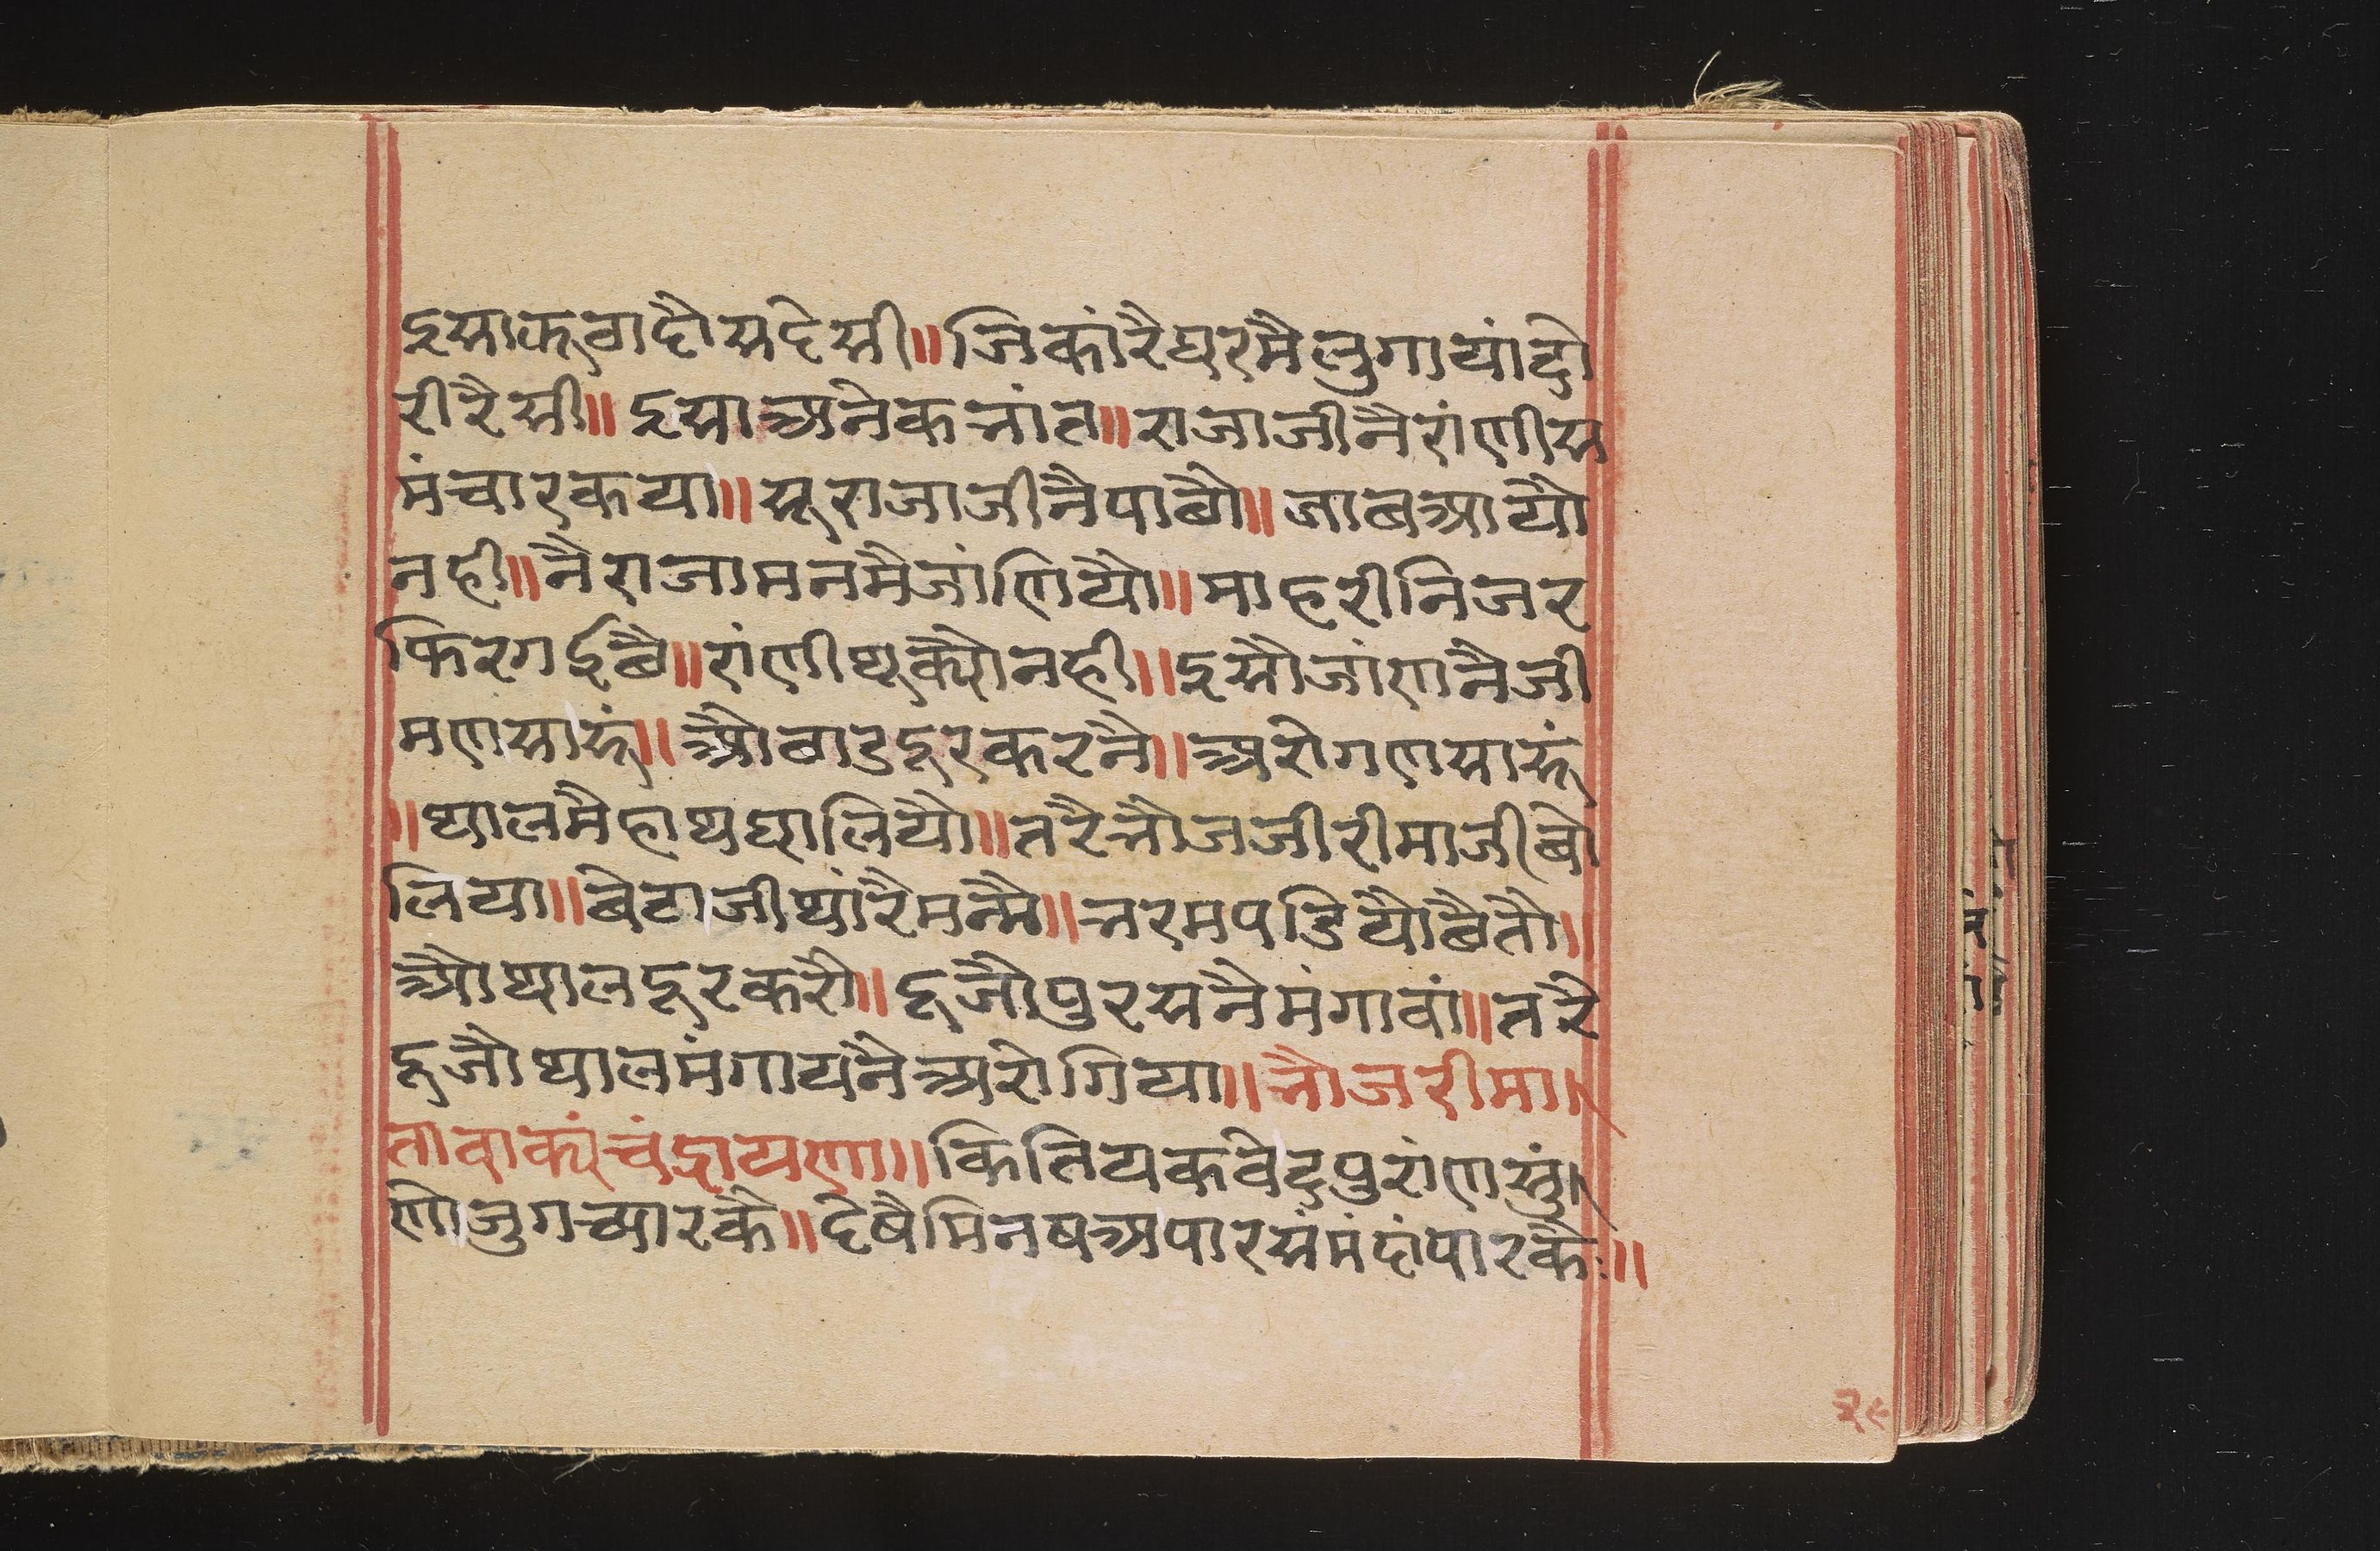 इसाकरवादौसदेसी॥जिकांरैघरमैलुगायांदो
रीरैसी॥इसाअनेकभांत॥राजाजीनैरांणीस
मंचारकया॥सूराजाजीनैपाछौ॥जाबआयौ
नही॥नैराजामनमैजांणियौ॥माहरीनिजर
फिरगईछै॥रांणीथूक्यौनही॥इसौजांणनैजी
मणसारूं॥औबाडदूरकरनै॥अरोगणसारूं
॥थालमैहाथघालियौ॥तरैभोजजीरीमाजीबो
लिया॥बेटाजीथांरैमनमै॥भरमपडियौछैतौ॥
औथालदूरकरौ॥दूजौपुरसनैमंगावां॥तरै
दूजौथालमंगायनैअरोगिया॥भोजरीमा
तावाक्यंचंद्रायणा॥कितियकवेदपुरांणसुं
णेजुगच्यारकै॥देषैमिनषअपारसंमंदांपारकै॥
२९